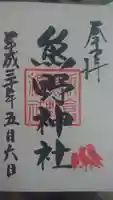 奉拝
熊野神社
平成三十年五月六日